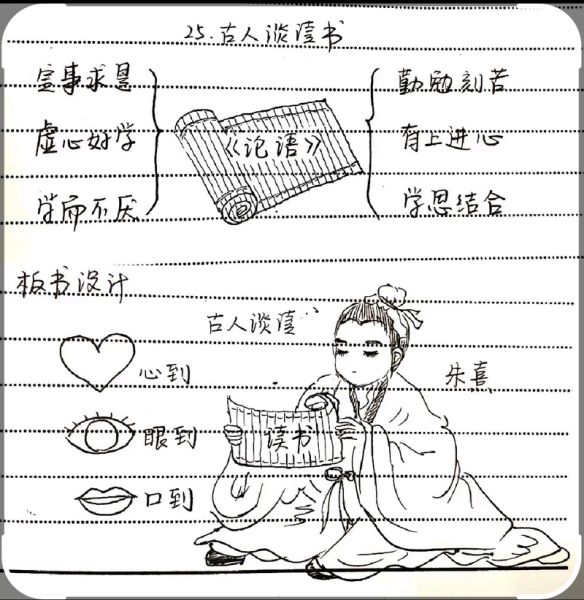 25.古人谈读书
实事求是
虚心好学
学而不厌
《论语》
勤勉刻苦
有上进心
学思结合
板书设计
古人谈读
心到
眼到
口到
读书
朱熹